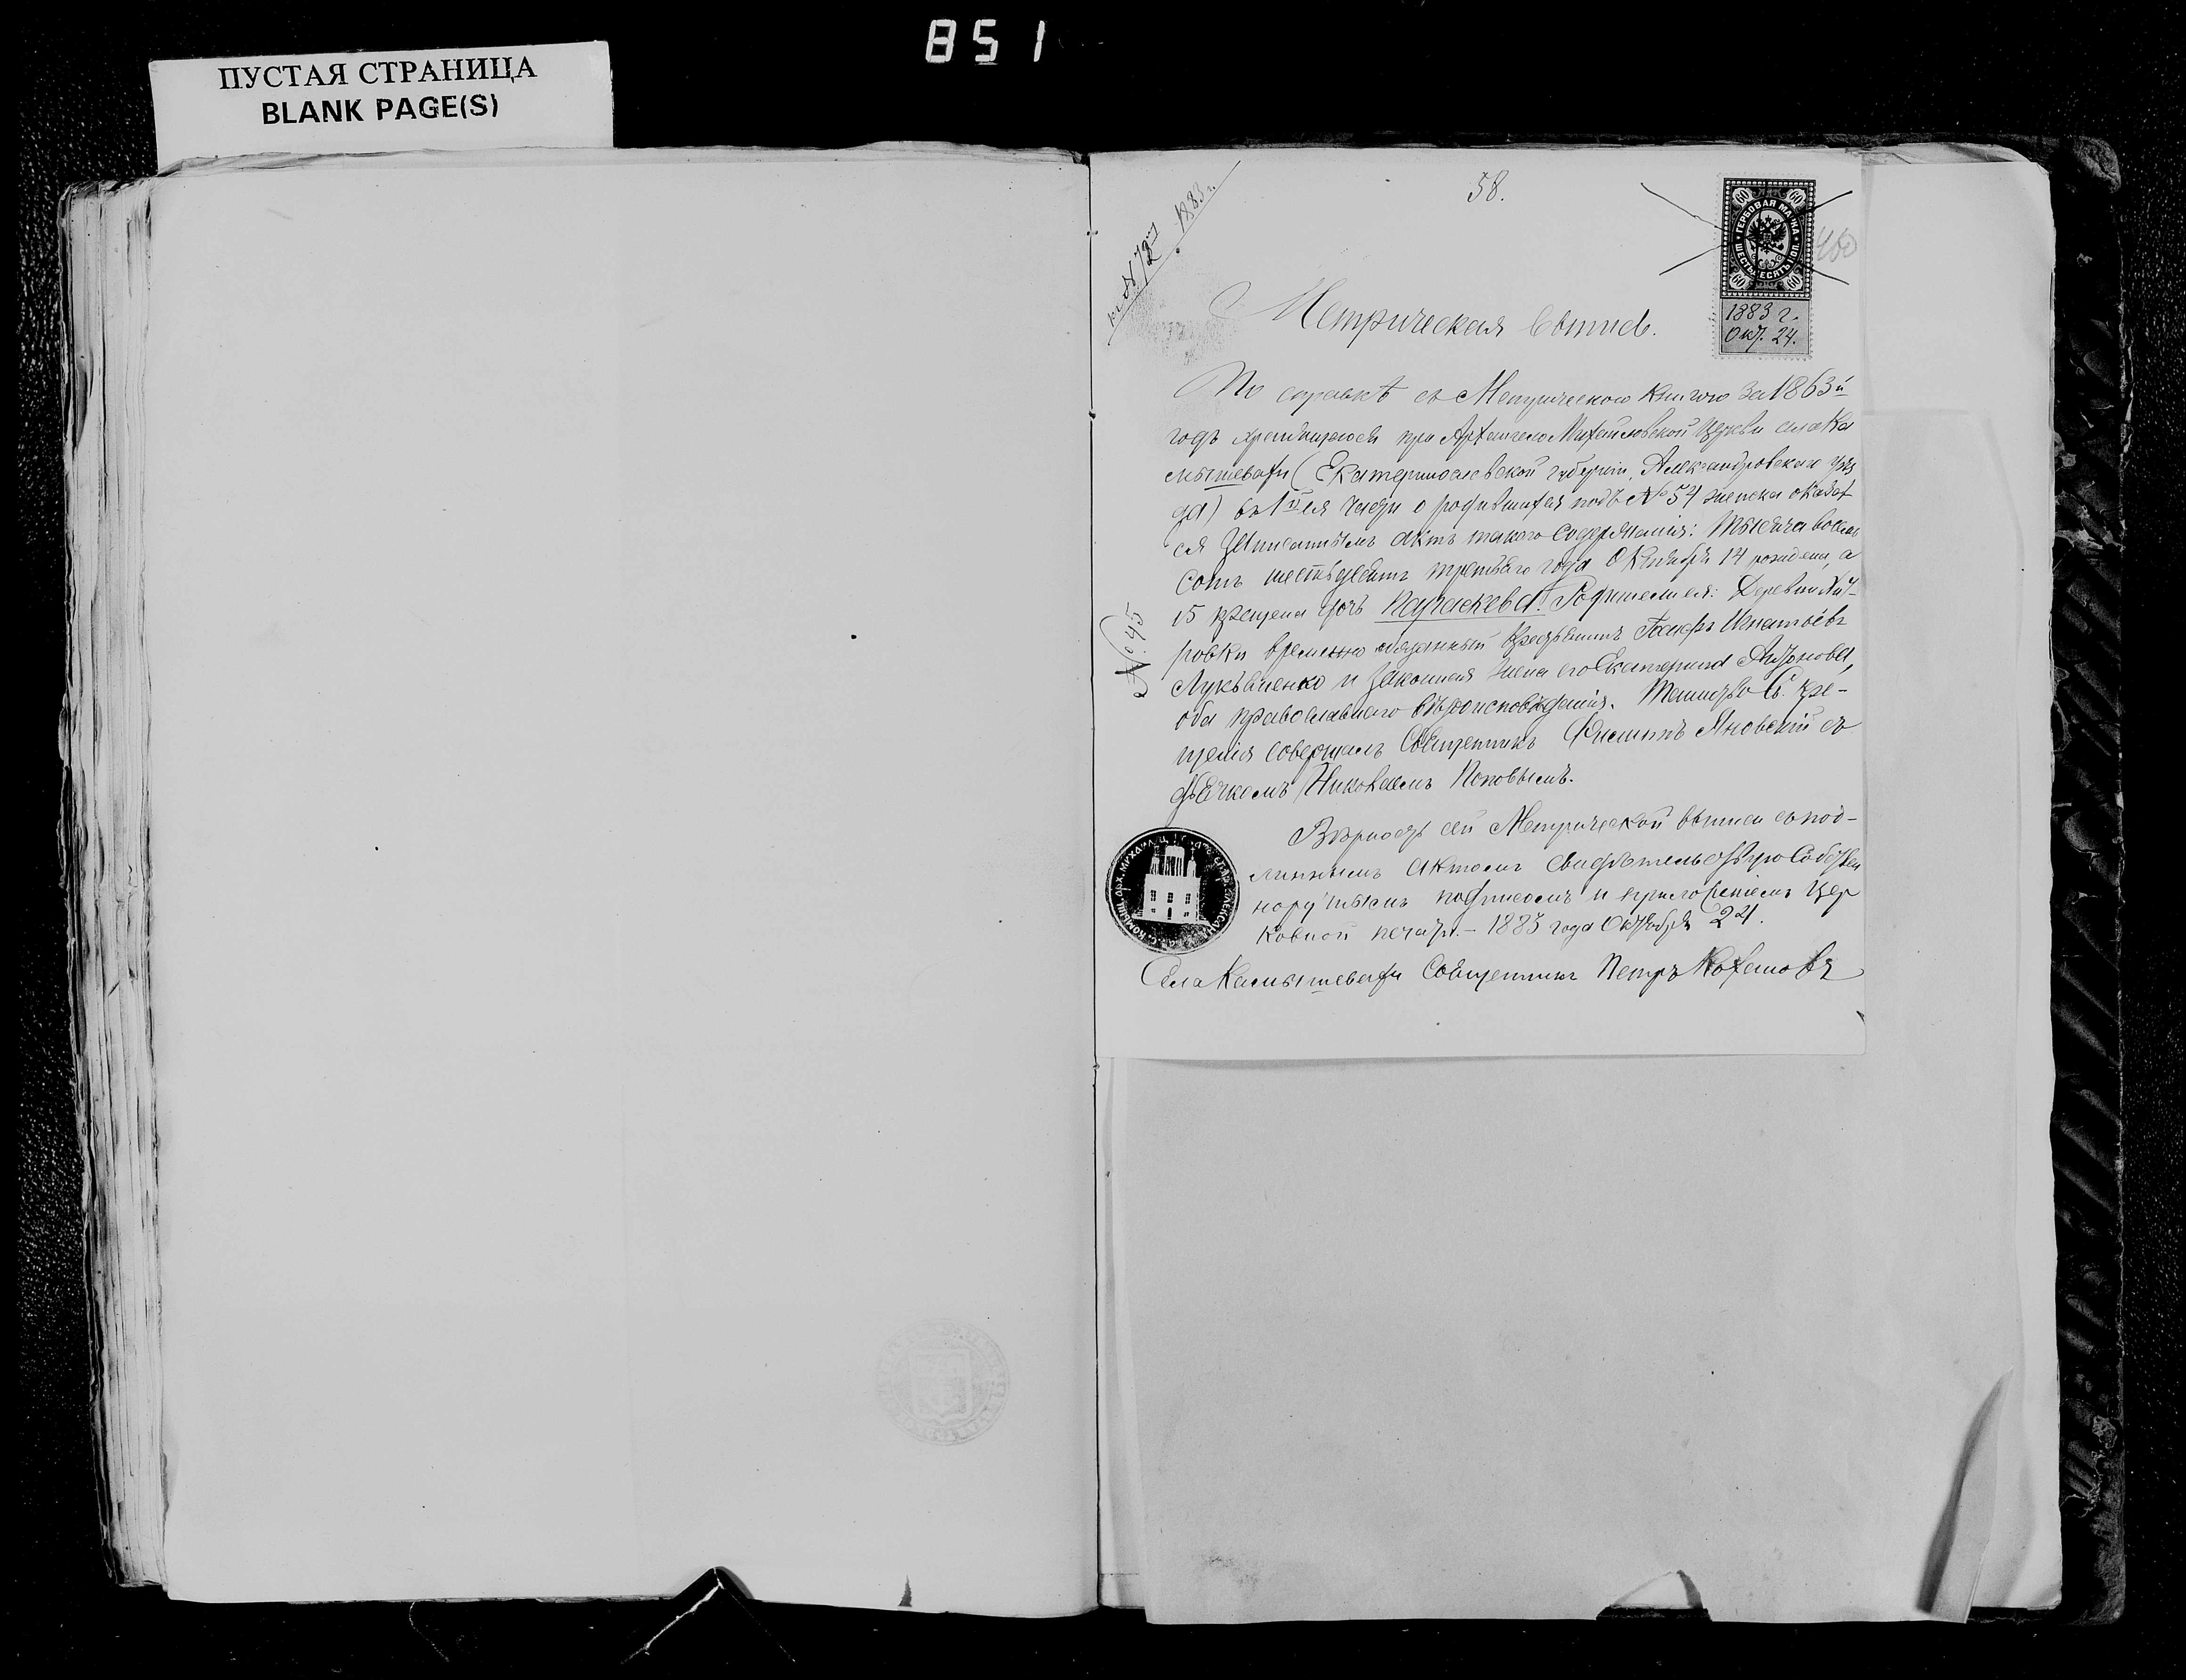 851
ПУСТАЯ СТРАНИЦА
BLANK PAGE(S)
58.
1883 г.
60 60
ГЕРБОВАЯ МАРКА
ШЕСТЬДЕСЯТЪ КОП.
60 60
1883 г.
Окт. 24.
460
Метрическая выпись.
По справкѣ съ Метрическою книгою за 1863й
годъ хранящеюся при Архангело Михайловской Церкви села Ка
мышевахи (Екатеринославской губерніи, Александровскаго уѣз
да) въ 1й ея части о родившихся подъ № 54 женска оказал
ся записаннымъ актъ такого содержанія: Тысяча восемь
сотъ шестьдесятъ третьяго года Октября 14 рождена, а
15 крещена дочь Параскева. Родители ея: Деревни
ровки временно обязанный крестьянинъ Іосифъ Игнатьевъ
Лукьяненко и законная жена его Екатерина Антонова,
оба православнаго вѣроисповѣданія. Таинство Св. кре-
щенія совершалъ Священникъ Яновскій съ
дьячкомъ Николаемъ Поповымъ.
№ 45
Вѣрность сей Метрической выписи съ под-
линнымъ актомъ свидѣтельствую собствен
норучнымъ подписомъ и приложеніемъ Цер
ковной печати. – 1883 года Октября 24.
Села Камышевахи Священникъ Петръ